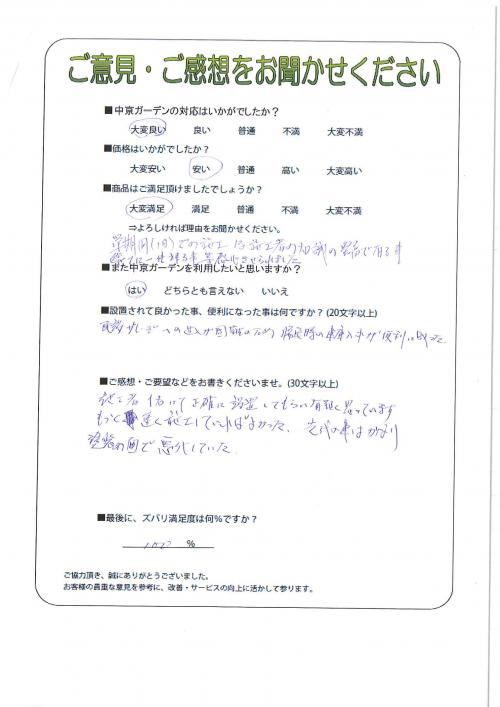 ご意見・ご感想をお聞かせください
■中京ガーデンの対応はいかがでしたか？
大変良い 良い 普通 不満 大変不満
■価格はいかがでしたか？
大変安い 安い 普通 高い 大変高い
■商品はご満足頂けましたでしょうか？
大変満足 満足 普通 不満 大変不満
⇒よろしければ理由をお聞かせください。
での施工は施工者の知識の豊富で有る事
■また中京ガーデンを利用したいと思いますか？
はい どちらとも言えない いいえ
■設置されて良かった事、便利になった事は何ですか？(20文字以上)
への進入が可能のため 時の車庫入れが便利に成った
■ご感想・ご要望などをお書きくださいませ。(30文字以上)
施工者 正確に設置してもらい有難く思っています
もっと 速く施工していればよかった、先代の車はかなり
塗装の面で悪化していた
■最後に、ズバリ満足度は何％ですか？
％
ご協力頂き、誠にありがとうございました。
お客様の貴重な意見を参考に、改善・サービスの向上に活かして参ります。